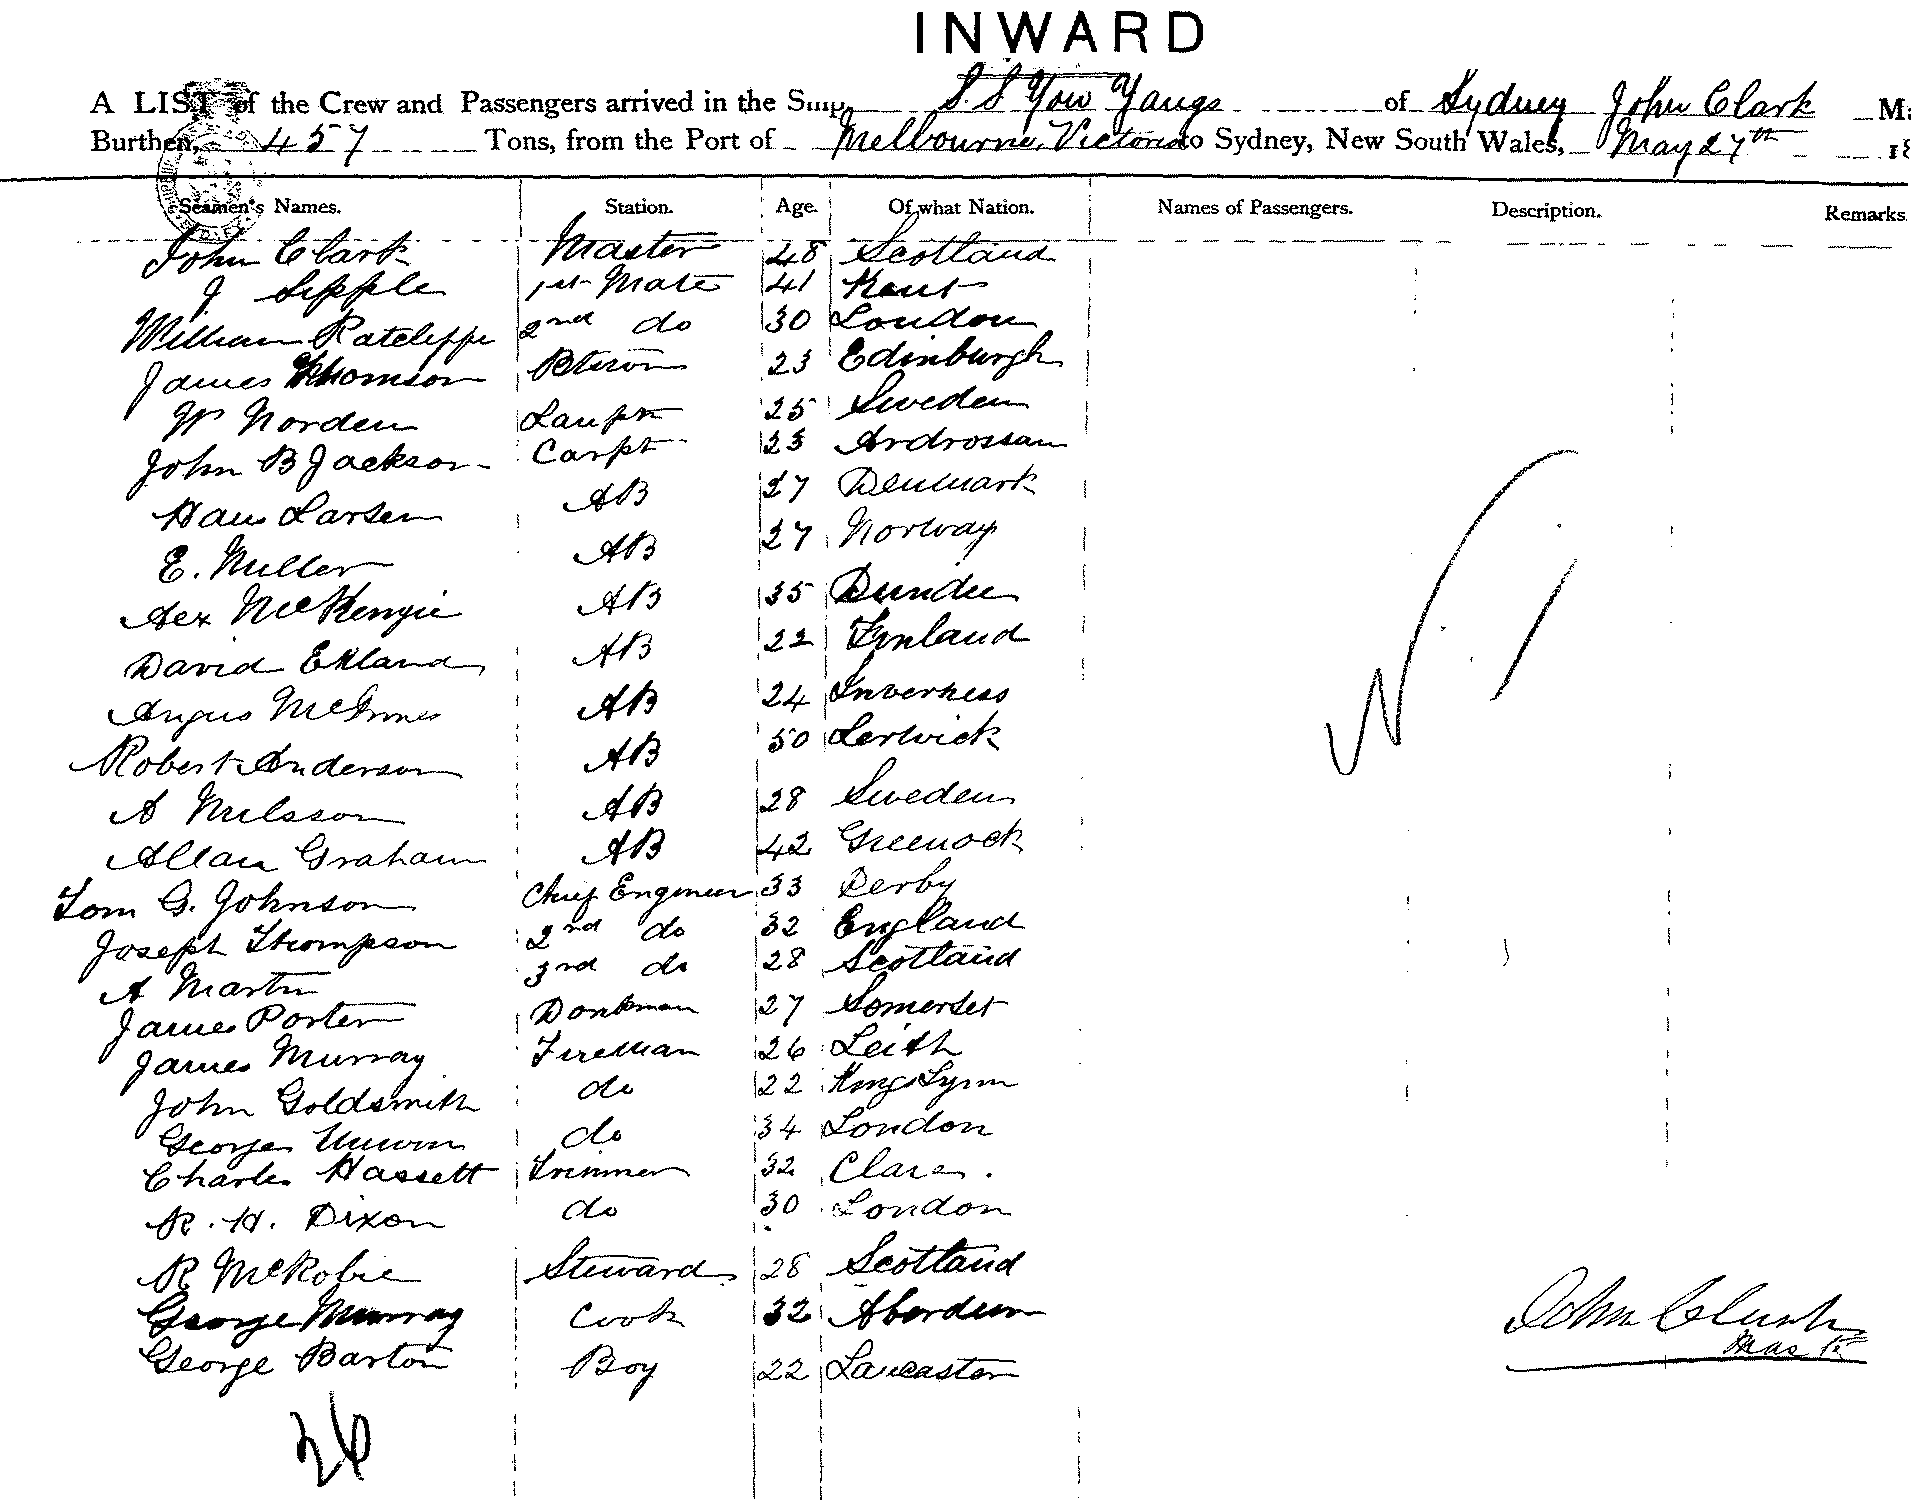 INWARD
A LIST of the Crew and Passengers arrived in the Ship, S S You Yangs of Sydney John Clark Ma
Burthen, 457 Tons, from the Port of Melbourne, Victoria to Sydney, New South Wales, May 27th 18
Seamen's Names. Station. Age. Of what Nation. Names of Passengers. Description. Remarks
John Clark Master 48 Scotland
J Sipple 1st Mate 41 Kent
William Ratcliffe 2nd do 30 London
James Thomson 23 Edinburgh
W Norden Lamptr 25 Sweden
John B Jackson Carpt 23 Ardrossan
Hans Larsen AB 27 Denmark
E. Miller AB 27 Norway
Aex McKenzie AB 35 Dundee
David Ekland AB 22 Finland
Angus McInnes AB 24 Inverness
Robert Anderson AB 50 Lerwick
A Nilsson AB 28 Sweden
Allan Graham AB 42 Greenock
Tom G. Johnson Chief Engineer 33 Derby
Joseph Thompson 2nd do 32 England
A Martin 3rd do 28 Scotland
James Porter Donkman 27 Somerset
James Murray Fireman 26 Leith
John Goldsmith do 22 Kings Lynn
George Unwin do 34 London
Charles Hassett Trimmer 32 Clare.
R. H. Dixon do 30 London
R McRobie Steward 28 Scotland
George Murray Cook 32 Aberdeen
George Barton Boy 22 Lancaster
John Clark
Master
26